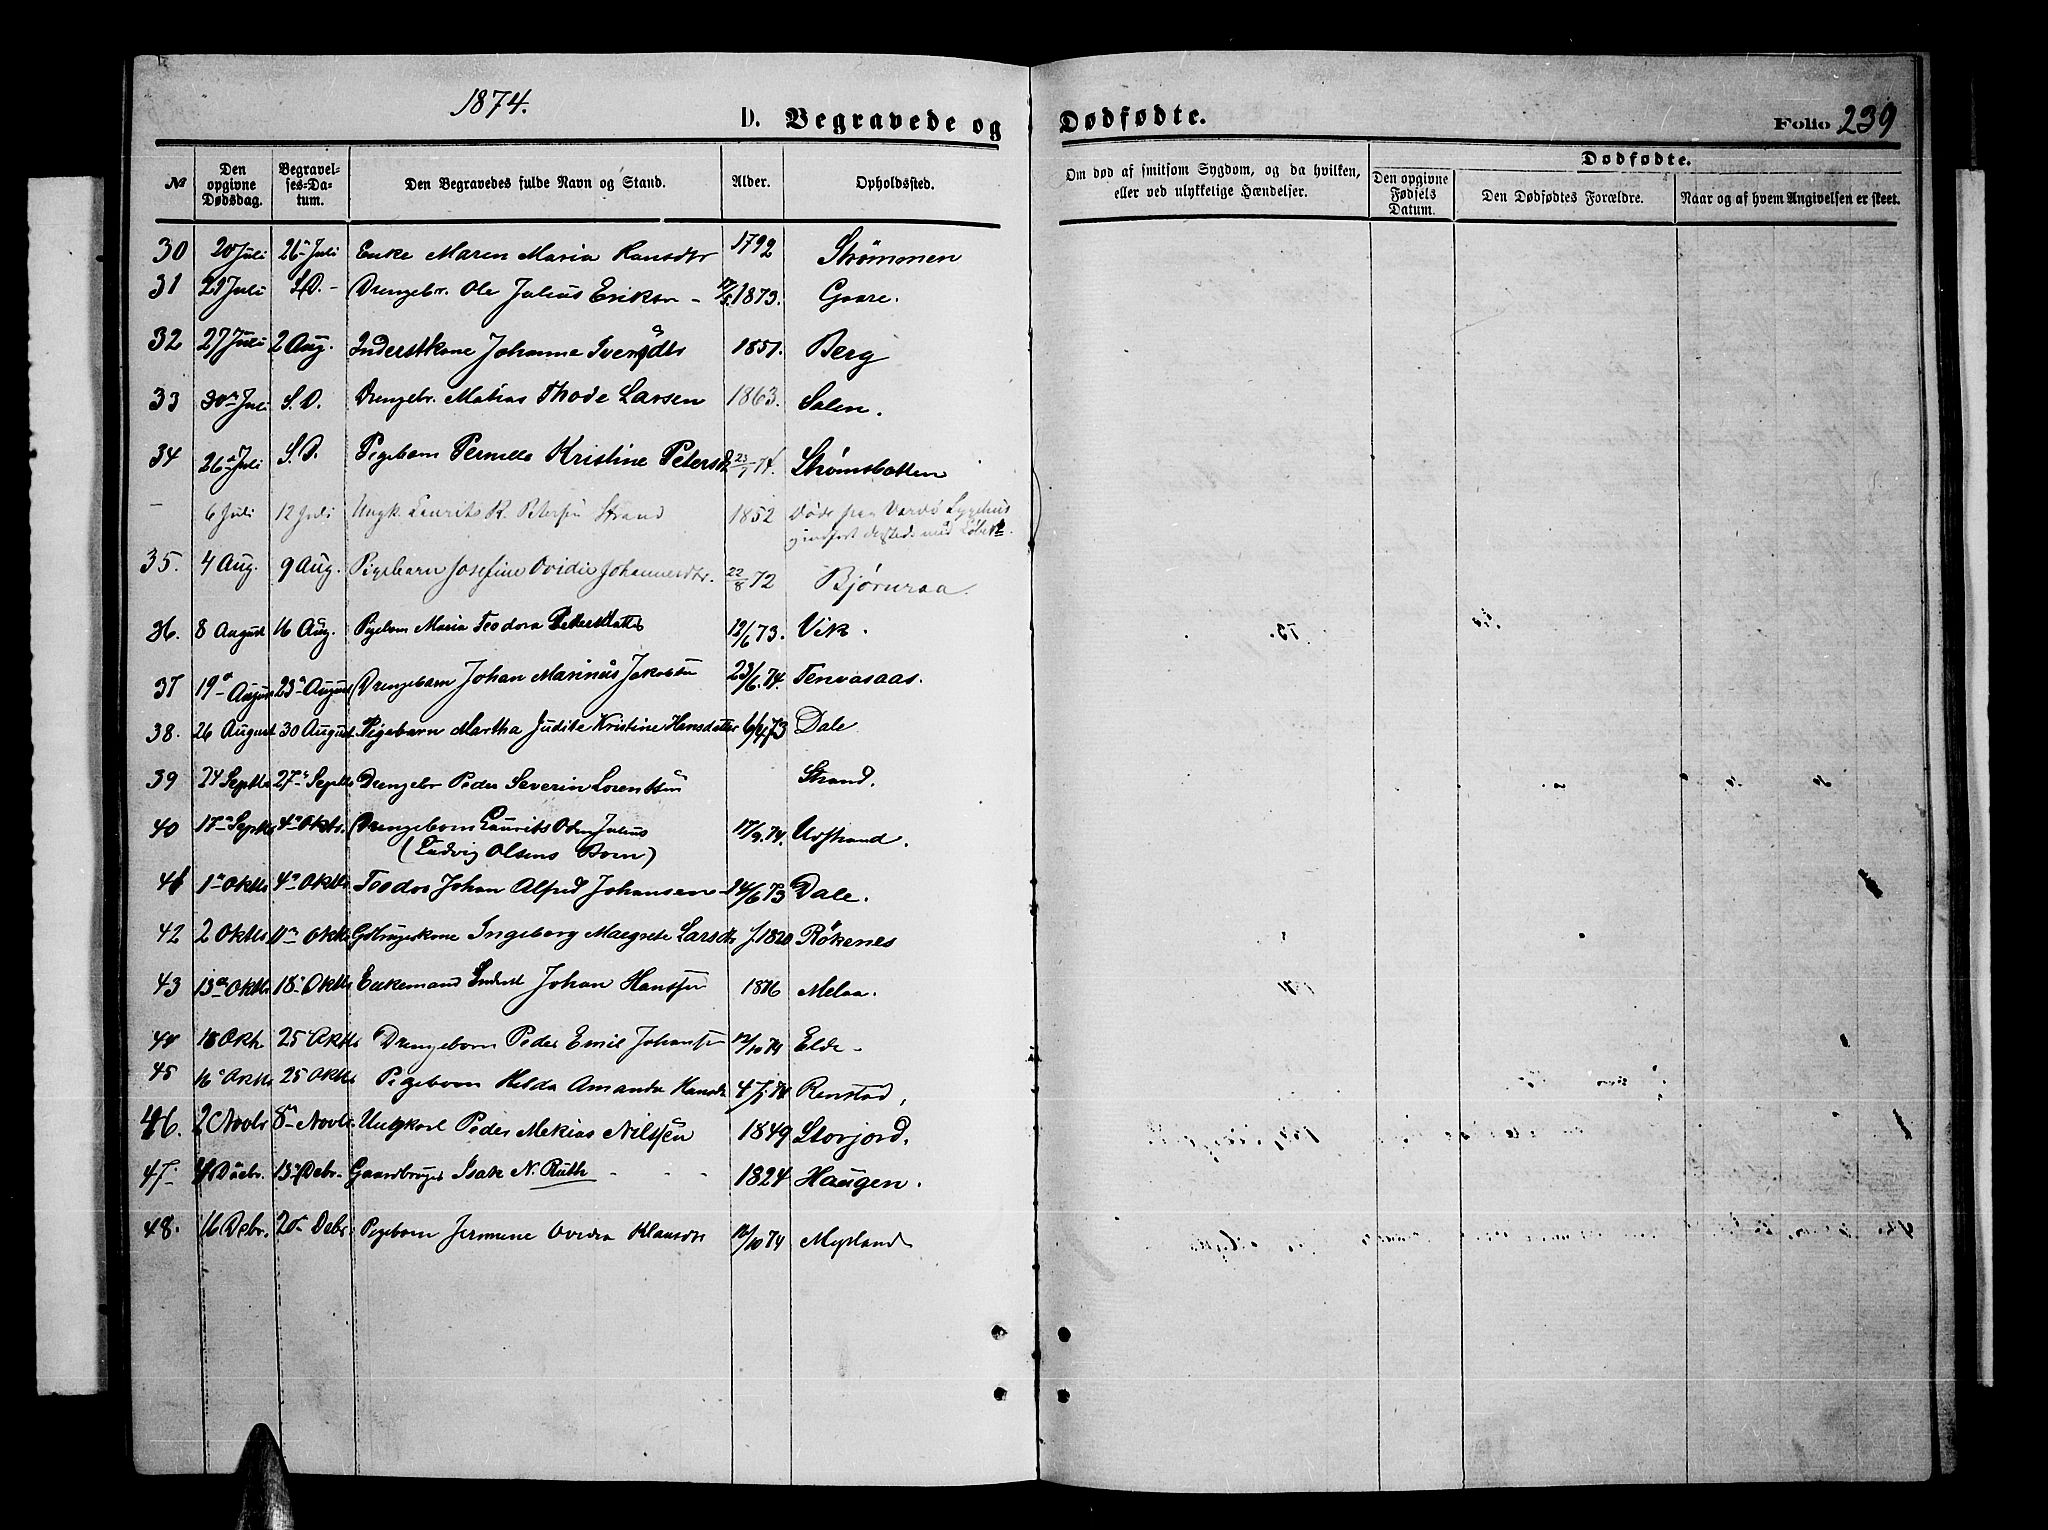 1874.
D. Begravede og Dødfødte.
Folio 239
№ Den opgivne Dødsdag. Begravelses-Datum. Den Begravedes fulde Navn og Stand. Alder. Opholdssted. Om død af smitsom Sygdom, og da hvilken, eller ved ulykkelige Hændelser. Dødfødte. Den opgivne Fødsels Datum. Den Dødfødtes Forældre. Naar og af hvem Angivelsen er skeet.
30 20 Juli 26 Juli Enke Maren Maria Hansdtr 1792 Strømmen
31 21 Juli S.D. - Drengebr. Ole Julius Eriksen - 1873. Gaare.
32 27 Juli 2 Aug. Inderstkone Johanna Iversdtr 1851. Berg
33 30 Juli S.D. Drengebr. Matias Thode Larsen 1863. Salen.
34 26 Juli S.D. Pigebarn Pernella Kristine Petersd 23/1 74. Strømsbotten
- 6 Juli 12 Juli Ungk. Laurits R. Petersen Strand 1852 Døde paa Vardø Sygehus
35. 4 Aug. 9 Aug. Pigebarn Josefine Ovidie Johannesdtr. 22/8 72 Bjørnraa.
36. 8 August 16 Aug. Pigebarn Maria Teodora 12/6 73. Vik.
37 19 August 23 August Drengebarn Johan Marinus Jakobsen 23/6. 74. Tenvasaas.
38. 26 August 30 August Pigebarn Martha Judite Kristine Hansdatter 6/4 73 Dale
39 24 Septbr 27 Septbr Drengebr Peder Severin Lorentsen Strand.
40 17 Septbr 4 Oktbr. Drengebarn Laurits Oden Julius 17/9. 74. Urstrand.
(Ludvig Olsens Barn)
41 1 Oktbr 4 Oktbr Teodor Johan Alfred Johansen 14/6 73 Dale.
42 2 Oktbr 11 Oktbr Gbrugerkone Ingeborg Margrete Larsdtr f. 1820 Røkenes
43 13 Oktbr 18 Oktbr Enkemand Inderst Johan Hanssen 1816 Melaa.
44 18 Okt. 25 Oktbr Drengebarn Peder Emil Johansen 12/10 74 Elde -
45 16 Oktbr 25 Oktbr Pigebarn Helda Amanda Hansdtr Renstad,
46. 2 Novbr 8 Novbr Ungkarl Peder Mekias Nilssen 1849 Storjord.
47 4 Decbr. 13 Debr. Gaardbruger Isak N. Ruth - - - 1824 Haugen.
48. 16 Debr. 20 Debr Pigebarn Jermine Ovidia Klausdtr 12/10 74 Myrland